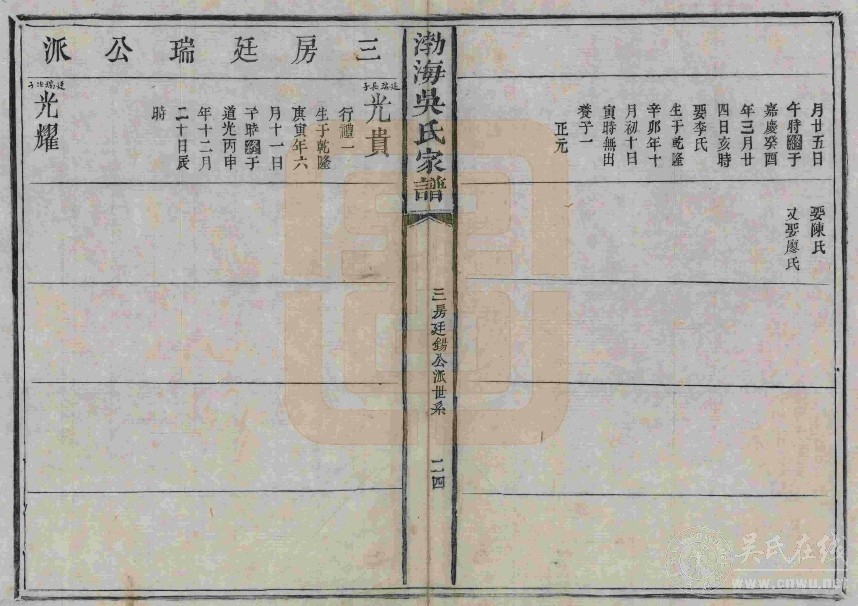 月廿五日
午時歿于
嘉慶癸酉
年三月廿
四日亥時
娶李氏
生于乾隆
辛卯年十
月初十日
寅時無出
養子一
正元
娶陳氏
又娶廖氏
渤海吳氏家譜
三房廷錫公派世系
二四
三房廷瑞公派
廷瑞長子
光貴
行禮一
生于乾隆
庚寅年六
月十一日
子時歿于
道光丙申
年十二月
二十日辰
時
廷瑞次子
光耀
吳氏在线
www.cnwu.net